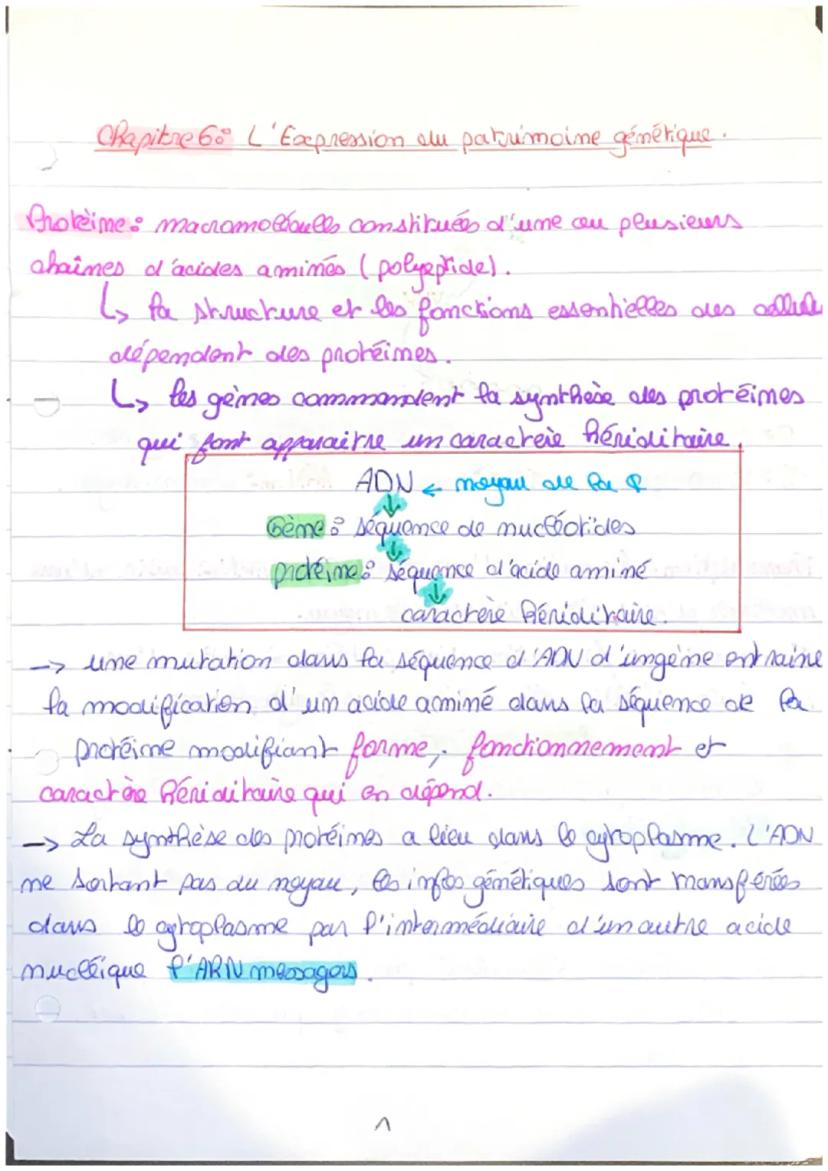 Chapitre 6 : L'Expression du patrimoine génétique.
Protéine : macromolécules constituées d'une ou plusieurs
chaînes d'acides aminés (polypeptide).
↳ la structure et les fonctions essentielles des cellule
dépendent des protéines.
↳ les gènes commandent la synthèse des protéines
qui font apparaitre un caractère héréditaire.
ADN ← noyau de la φ
↓
Gène : séquence de nucléotides
↓
protéine : séquence d'acide aminé
↓
caractère héréditaire.
→ une mutation dans la séquence d'ADN d'un gène entraine
la modification d'un acide aminé dans la séquence de la
protéine modifiant forme, fonctionnement et
caractère héréditaire qui en dépend.
→ La synthèse des protéines a lieu dans le cytoplasme. L'ADN
ne sortant pas du noyau, les infos génétiques sont transférées
dans le cytoplasme par l'intermédiaire d'un autre acide
nucléique l'ARN messagers.
1